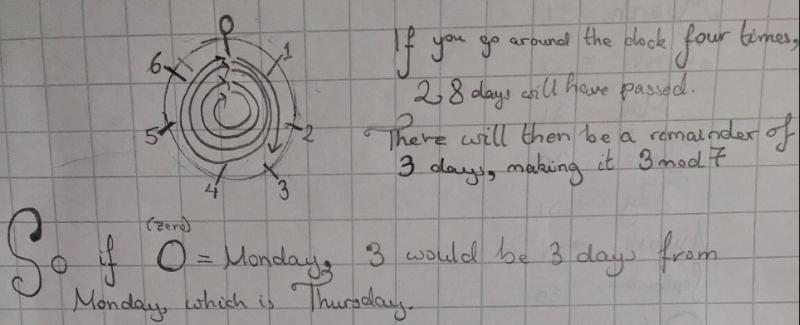 0
1
2
3
4
5
6
If you go around the clock four times,
28 days will have passed.
There will then be a remainder of
3 days, making it 3 mod 7
(zero)
So if 0 = Monday, 3 would be 3 days from
Monday, which is Thursday.